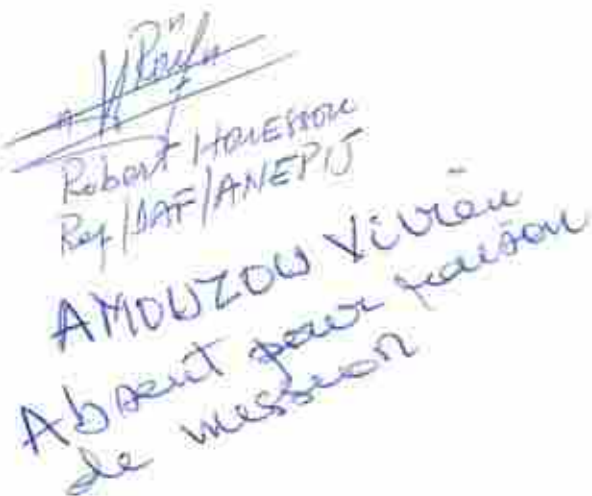 Robert HOUESSOU
Rep/DAF/ANEPIJ
AMOUZOU Vivien
Absent pour raison
de mission